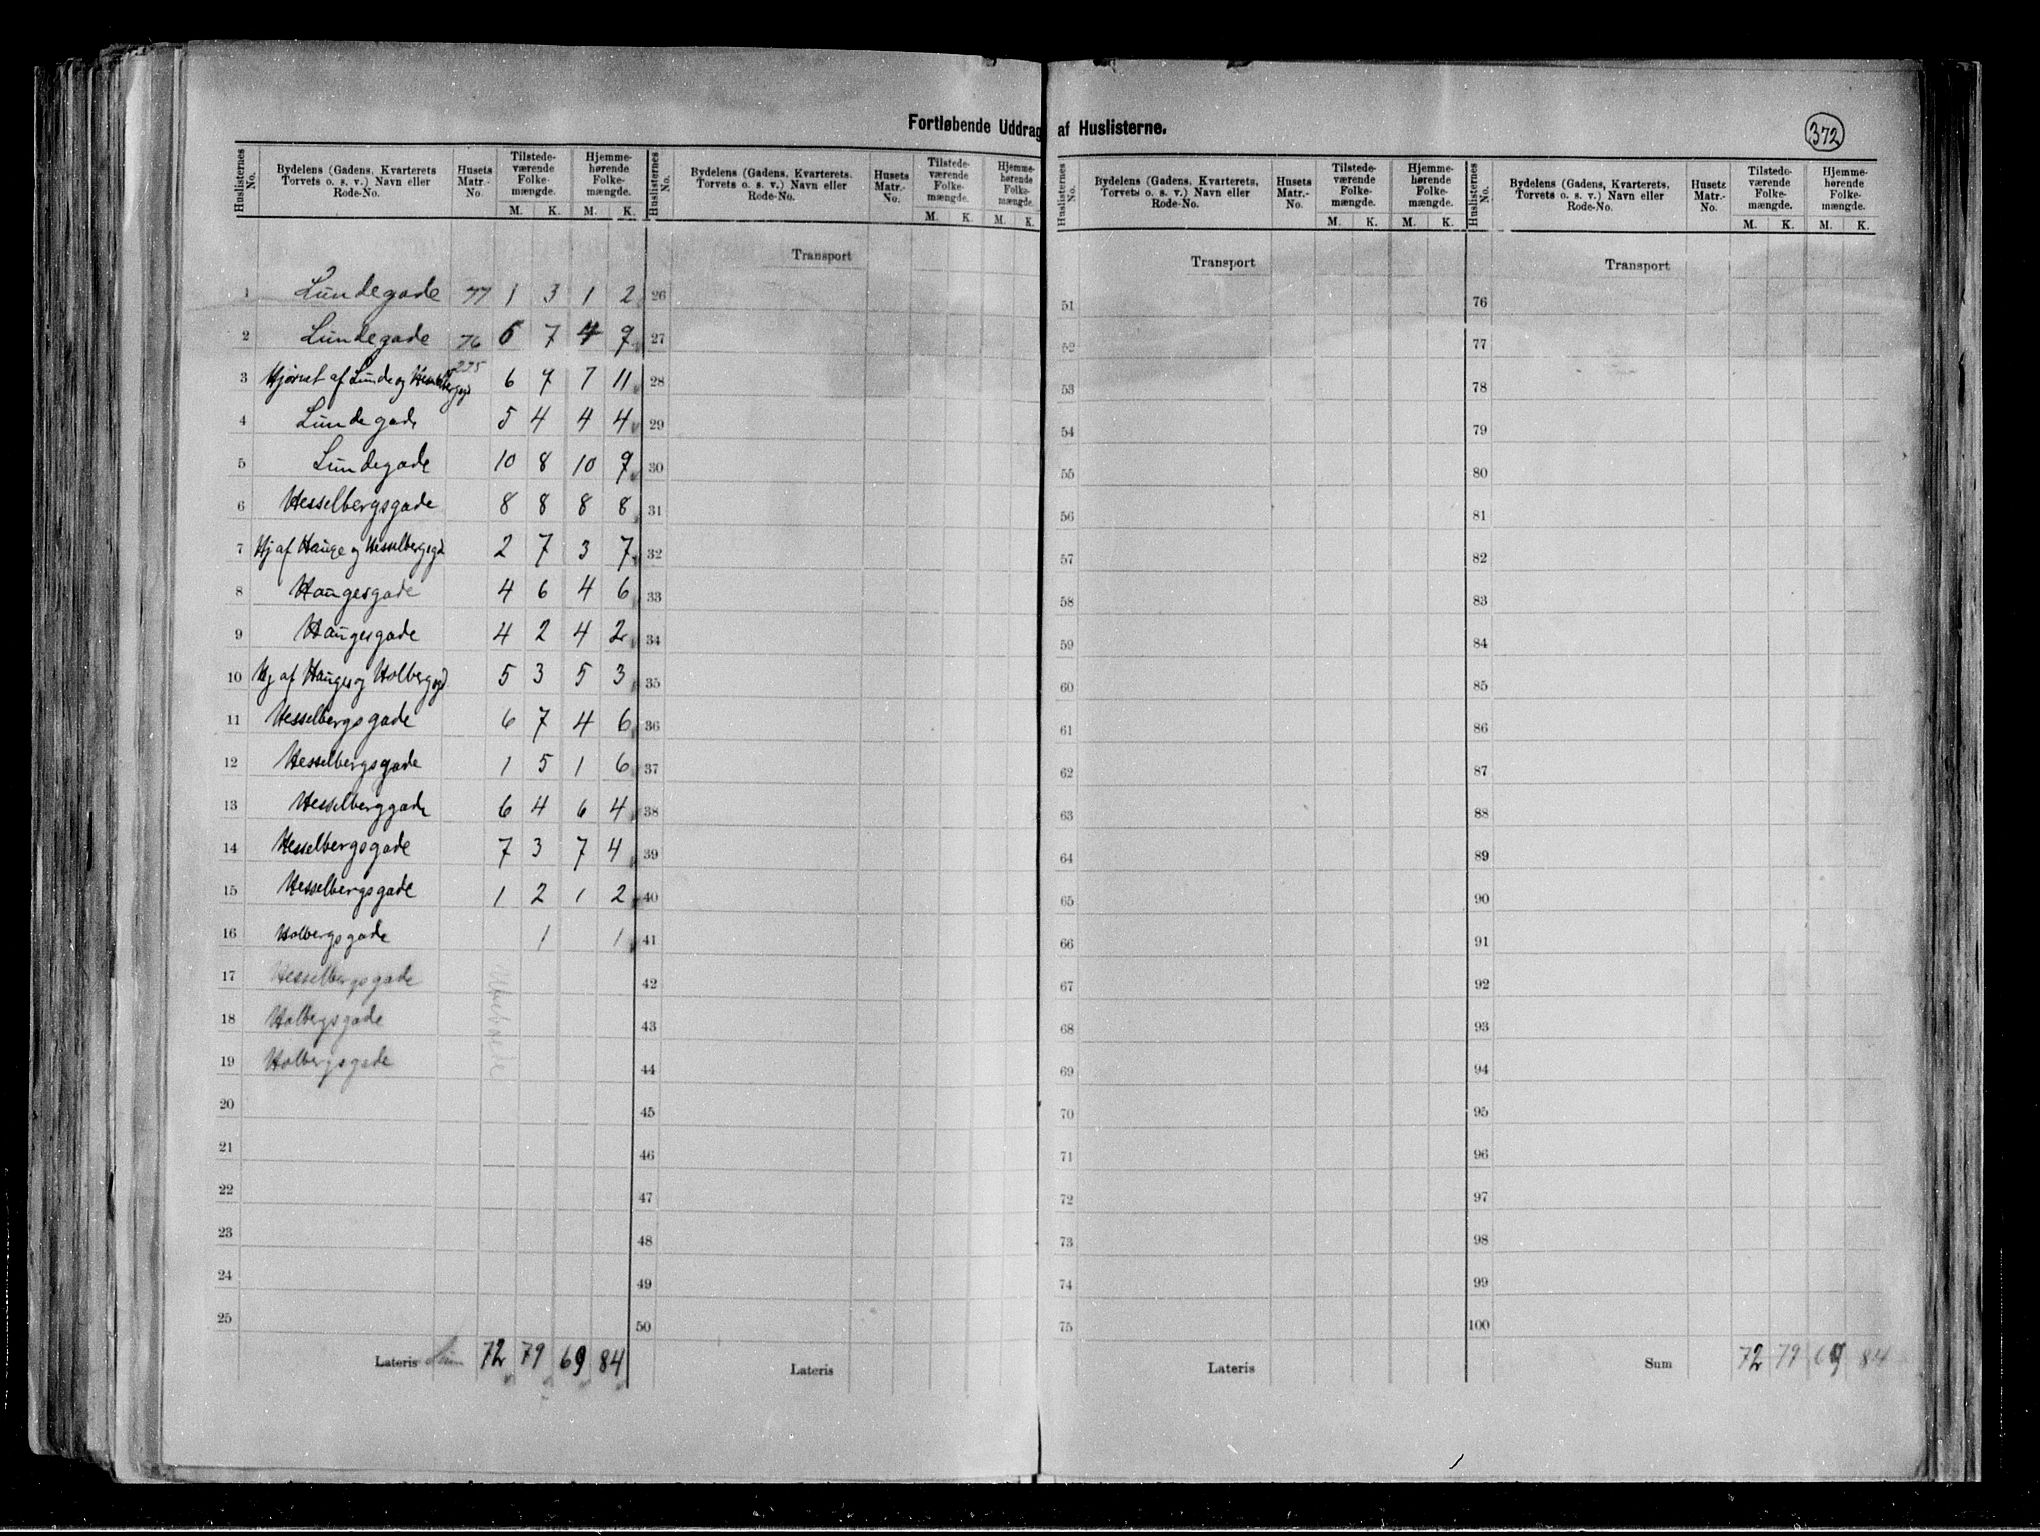 Fortløbende Uddrag af Huslisterne.
372
Huslisternes No. Bydelens (Gadens, Kvarterets Torvets o. s. v.) Navn eller Rode-No. Husets Matr.-No. Tilstedeværende Folkemængde. M. K. Hjemmehørende Folkemængde. M. K.
1 Lundegade 77 1 3 1 2
2 Lundegade 76 6 7 4 9
3 Hjørnet af Lunde og Hesselbergsgd 225 6 7 7 11
4 Lundegade 5 4 4 4
5 Lundegade 10 8 10 9
6 Hesselbergsgade 8 8 8 8
7 Hj af Hauge og Hesselbergsgd 2 7 3 7
8 Haugesgade 4 6 4 6
9 Haugesgade 4 2 4 2
10 Hj af Hauges og Holbergsgd 5 3 5 3
11 Hesselbergsgade 6 7 4 6
12 Hesselbergsgade 1 5 1 6
13 Hesselberggade 6 4 6 4
14 Hesselbergsgade 7 3 7 4
15 Hesselbergsgade 1 2 1 2
16 Holbergsgade 1 1
17 Hesselbergsgade
18 Holbergsgade
19 Holbergsgade
Ubeboede
20
21
22
23
24
25
Lateris Sum 72 79 69 84
Huslisternes No. Bydelens (Gadens, Kvarterets, Torvets o. s. v.) Navn eller Rode-No. Husets Matr.-No. Tilstedeværende Folkemængde. M. K. Hjemmehørende Folkemængde. M. K.
Transport
26
27
28
29
30
31
32
33
34
35
36
37
38
39
40
41
42
43
44
45
46
47
48
49
50
Lateris
Huslisternes No. Bydelens (Gadens, Kvarterets, Torvets o. s. v.) Navn eller Rode-No. Husets Matr.-No. Tilstedeværende Folkemængde. M. K. Hjemmehørende Folkemængde. M. K.
Transport
51
52
53
54
55
56
57
58
59
60
61
62
63
64
65
66
67
68
69
70
71
72
73
74
75
Lateris
Huslisternes No. Bydelens (Gadens, Kvarterets, Torvets o. s. v.) Navn eller Rode-No. Husets Matr.-No. Tilstedeværende Folkemængde. M. K. Hjemmehørende Folkemængde. M. K.
Transport
76
77
78
79
80
81
82
83
84
85
86
87
88
89
90
91
92
93
94
95
96
97
98
99
100
Sum 72 79 69 84